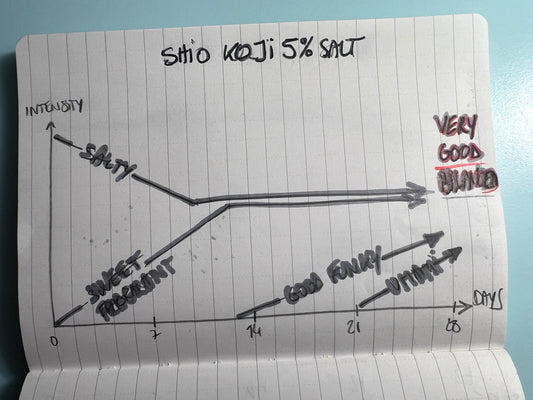 SHIO KOJI 5% SALT
INTENSITY
VERY
GOOD
BALANCED
SALTY
SWEET
FRAGRANT
GOOD FUNKY
UMAMI
DAYS
0 7 14 21 28